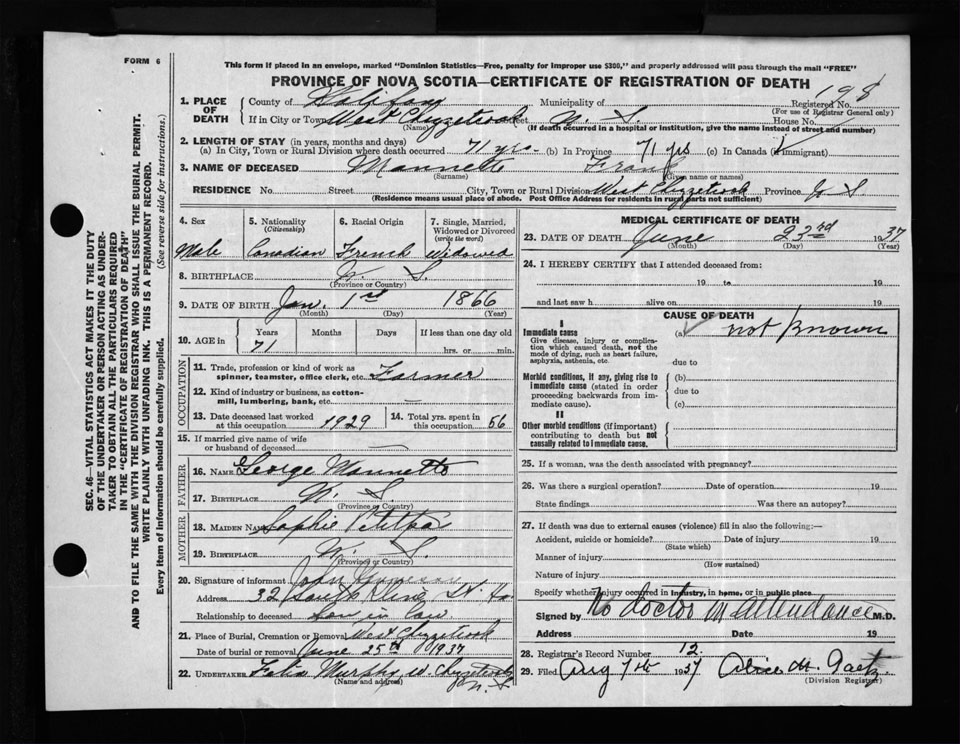 FORM 6
This form if placed in an envelope, marked "Dominion Statistics—Free, penalty for improper use $300," and properly addressed will pass through the mail "FREE"
PROVINCE OF NOVA SCOTIA—CERTIFICATE OF REGISTRATION OF DEATH
198
1. PLACE OF DEATH { County of Halifax Municipality of Registered No.
(For use of Registrar General only)
If in City or Town West Chezzetcook Street N. S. House No.
(Name) (If death occurred in a hospital or institution, give the name instead of street and number)
2. LENGTH OF STAY (in years, months and days)
(a) In City, Town or Rural Division where death occurred 71 yrs. (b) In Province 71 yrs (c) In Canada (if immigrant)
3. NAME OF DECEASED Mannette Frank
(Surname) (Given name or names)
RESIDENCE No. Street City, Town or Rural Division West Chezzetcook Province N S
(Residence means usual place of abode. Post Office Address for residents in rural parts not sufficient)
4. Sex 5. Nationality (Citizenship) 6. Racial Origin 7. Single, Married, Widowed or Divorced (write the word)
Male Canadian French Widowed
8. BIRTHPLACE N. S.
(Province or Country)
9. DATE OF BIRTH Jan. 1st 1866
(Month) (Day) (Year)
10. AGE in Years Months Days If less than one day old
71 hrs. or min.
OCCUPATION
11. Trade, profession or kind of work as spinner, teamster, office clerk, etc. Farmer
12. Kind of industry or business, as cotton-mill, lumbering, bank, etc.
13. Date deceased last worked at this occupation 1929 14. Total yrs. spent in this occupation 56
15. If married give name of wife or husband of deceased
FATHER
16. NAME George Mannette
17. BIRTHPLACE N. S.
(Province or Country)
MOTHER
18. MAIDEN NAME Sophie Petitpas
19. BIRTHPLACE N. S.
(Province or Country)
20. Signature of informant John
Address 32
Relationship to deceased Son in law
21. Place of Burial, Cremation or Removal West Chezzetcook
Date of burial or removal June 25th 1937
22. UNDERTAKER Murphy W. Chezzetcook
(Name and address) N. S
MEDICAL CERTIFICATE OF DEATH
23. DATE OF DEATH June 23rd 1937
(Month) (Day) (Year)
24. I HEREBY CERTIFY that I attended deceased from:
19 to 19
and last saw h alive on 19
CAUSE OF DEATH
I
Immediate cause (a) not known
Give disease, injury or complication which caused death, not the mode of dying, such as heart failure, asphyxia, asthenia, etc.
due to
Morbid conditions, if any, giving rise to immediate cause (stated in order proceeding backwards from immediate cause).
(b)
due to
(c)
II
Other morbid conditions (if important) contributing to death but not causally related to immediate cause.
25. If a woman, was the death associated with pregnancy?
26. Was there a surgical operation? Date of operation 19
State findings Was there an autopsy?
27. If death was due to external causes (violence) fill in also the following:—
Accident, suicide or homicide? Date of injury 19
(State which)
Manner of injury
(How sustained)
Nature of injury
Specify whether injury occurred in industry, in home, or in public place
Signed by No doctor in attendance M.D.
Address Date 19
28. Registrar's Record Number 12
29. Filed Aug 7th 1937 Alice M. Gaetz
(Division Registrar)
SEC. 46—VITAL STATISTICS ACT MAKES IT THE DUTY
OF THE UNDERTAKER OR PERSON ACTING AS UNDER-
TAKER TO OBTAIN ALL THE PARTICULARS REQUIRED
IN THE "CERTIFICATE OF REGISTRATION OF DEATH"
AND TO FILE THE SAME WITH THE DIVISION REGISTRAR WHO SHALL ISSUE THE BURIAL PERMIT.
WRITE PLAINLY WITH UNFADING INK. THIS IS A PERMANENT RECORD.
Every item of information should be carefully supplied. (See reverse side for instructions.)